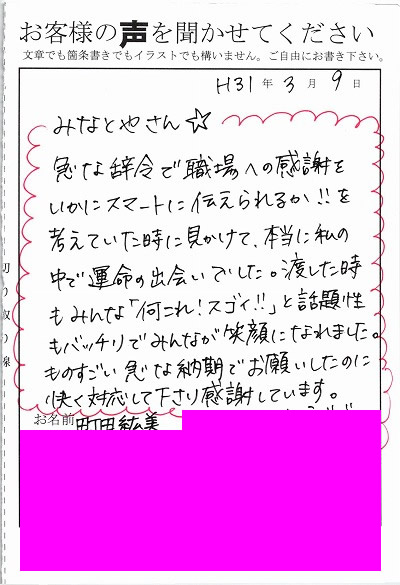 お客様の声を聞かせてください
文章でも箇条書きでもイラストでも構いません。ご自由にお書き下さい。
H31年 3月 9日
みなとやさん☆
急な辞令で職場への感謝を
いかにスマートに伝えられるか!!を
考えていた時に見かけて、本当に私の
中で運命の出会いでした。渡した時
もみんな「何これ!スゴイ!!」と話題性
もバッチリでみんなが笑顔になれました。
ものすごい急な納期でお願いしたのに
快く対応して下さり感謝しています。
お名前 町田紘美
切り取り線